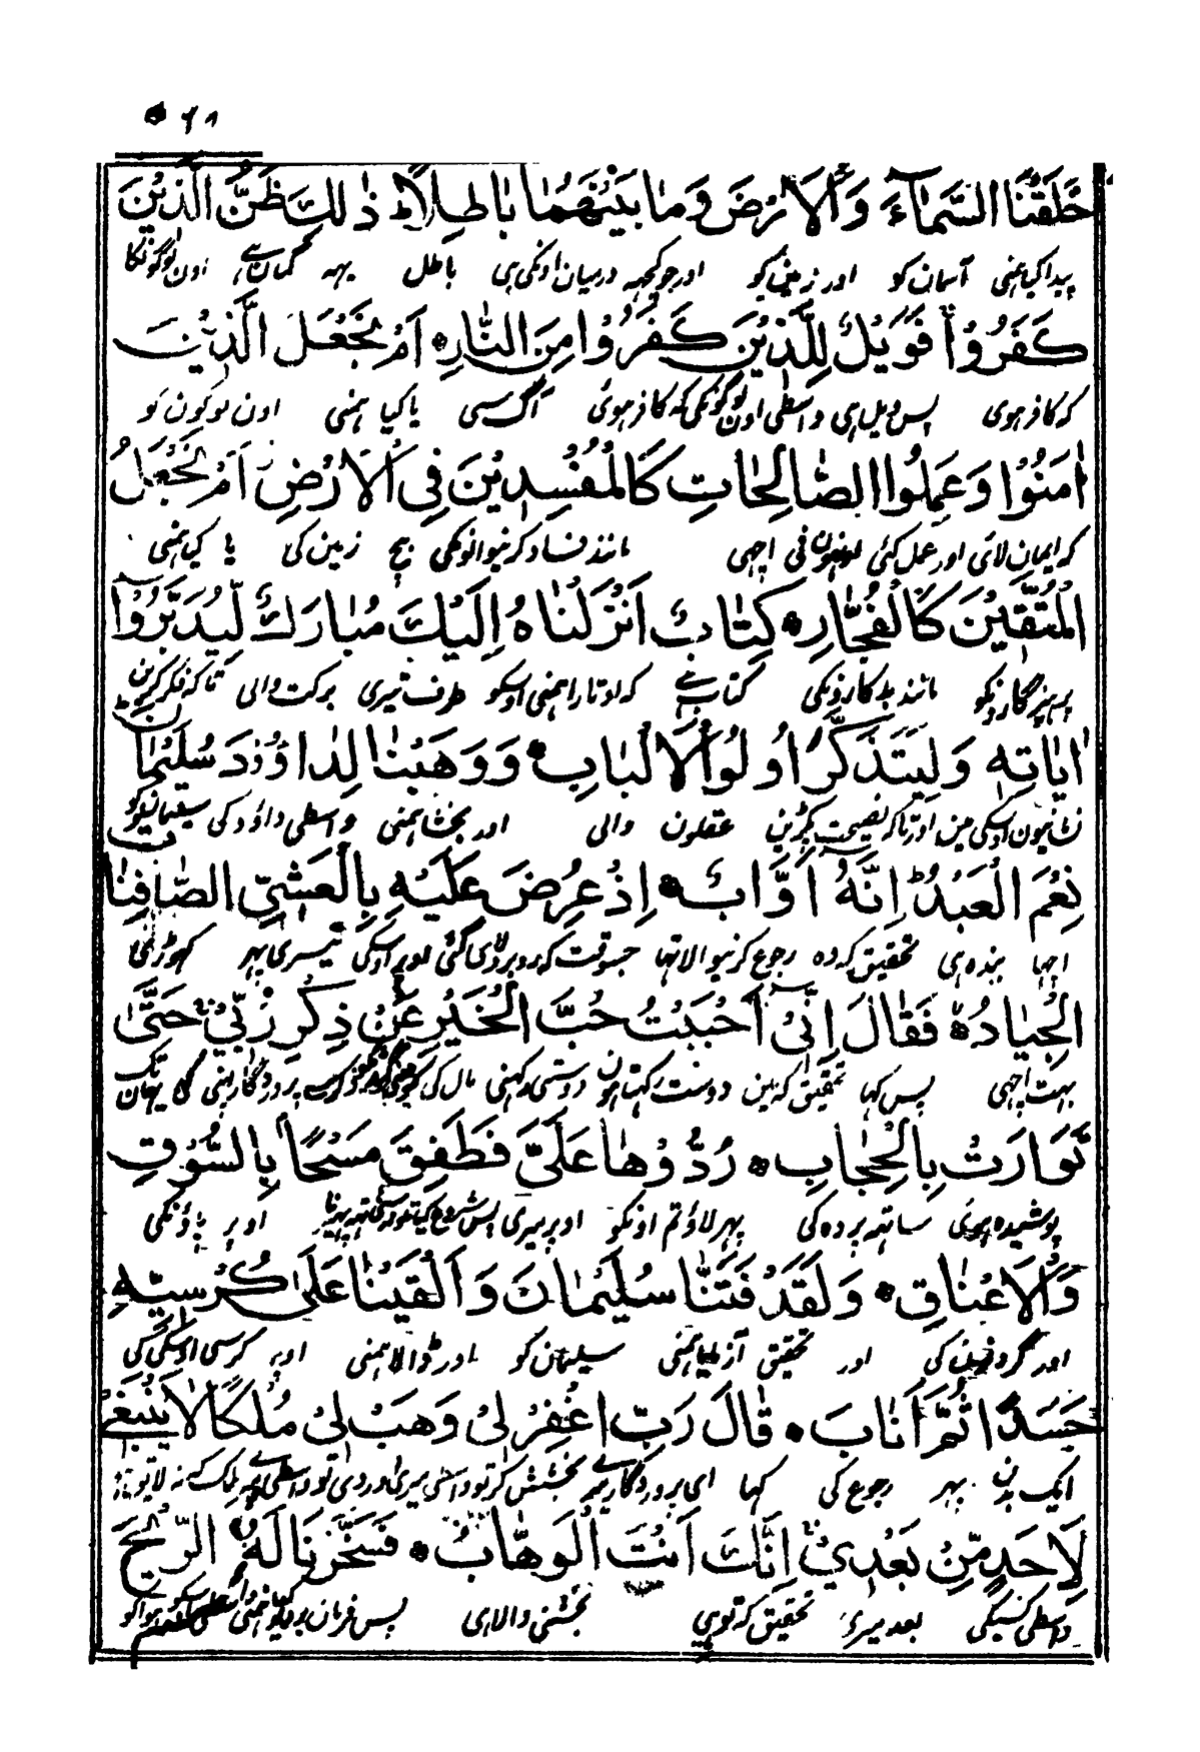 ۵۶۸
خَلَقْنَا السَّمَآءَ وَالْاَرْضَ وَمَا بَيْنَهُمَا بَاطِلًا ط ذٰلِكَ ظَنُّ الَّذِيْنَ
پیدا کیا ہمنی آسمان کو اور زمین کو اور جو کچہہ درمیان اونکی ہی باطل یہہ گمان ہے اون لوگونکا
كَفَرُوْا فَوَيْلٌ لِّلَّذِيْنَ كَفَرُوْا مِنَ النَّارِ ہ اَمْ نَجْعَلُ الَّذِيْنَ
کہ کافر ہوی پس ویل ہی واسطی اون لوگونکی کہ کافر ہوئ آگ سی یا کیا ہمنی اون لوکون کو
اٰمَنُوْا وَعَمِلُوا الصَّالِحَاتِ كَالْمُفْسِدِيْنَ فِي الْاَرْضِ اَمْ نَجْعَلُ
کہ ایمان لائ اور عمل کئی اونہون نی اچہی مانند فساد کرنیوالونکی بیچ زمین کی یا کیا ہمنی
الْمُتَّقِيْنَ كَالْفُجَّارِ ہ كِتَابٌ اَنْزَلْنَاهُ اِلَيْكَ مُبَارَكٌ لِّيَدَّبَّرُوْٓا
پرہیزگارونکو مانند بدکارونکی کتاب ہے کہ اوتارا ہمنی اوسکو طرف تیری برکت والی تاکہ فکر کرین
اٰيَاتِهٖ وَلِيَتَذَكَّرَ اُولُوا الْاَلْبَابِ ہ وَوَهَبْنَا لِدَاوٗدَ سُلَيْمٰنَ
نشانیون اوسکی مین اور تاکہ نصیحت پکڑین عقلون والی اور بخشا ہمنی واسطی داؤد کی سلیمانکو
نِعْمَ الْعَبْدُ ط اِنَّهٗٓ اَوَّابٌ ہ اِذْ عُرِضَ عَلَيْهِ بِالْعَشِيِّ الصَّافِنَاتُ
اچہا بندہ ہی تحقیق کہ وہ رجوع کرنیوالا تہا جسوقت کہ روبرو لائی گئی اوپر اوسکی تیسری پہر کہوڑی
الْجِيَادُ ہ فَقَالَ اِنِّيْٓ اَحْبَبْتُ حُبَّ الْخَيْرِ عَنْ ذِكْرِ رَبِّيْ حَتّٰى
بہت اچہی پس کہا تحقیق کہ مین دوست رکہتا ہون دوستی رکہنی مال کی پروردگار اپنی کی یہان تک
تَوَارَتْ بِالْحِجَابِ ہ رُدُّوْهَا عَلَيَّ فَطَفِقَ مَسْحًا بِالسُّوْقِ
پوشیدہ ہوئ ساتہہ پردہ کی پہر لاؤ تم اونکو اوپر میری پس شروع کیا اوپر پاؤنکی
وَالْاَعْنَاقِ ہ وَلَقَدْ فَتَنَّا سُلَيْمَانَ وَاَلْقَيْنَا عَلٰى كُرْسِيِّهٖ
اور گردنون کی اور تحقیق آزمایا ہمنی سلیمان کو اور ڈالا ہمنی اوپر کرسی اوسکی کی
جَسَدًا ثُمَّ اَنَابَ ہ قَالَ رَبِّ اغْفِرْ لِيْ وَهَبْ لِيْ مُلْكًا لَّا يَنْبَغِيْ
ایک بدن پہر رجوع کی کہا ای پروردگار میرے بخشش کر تو واسطی میری اور دی تو واسطی میرے ملک کہ نہ لایق
لِاَحَدٍ مِّنْ بَعْدِيْ اِنَّكَ اَنْتَ الْوَهَّابُ ہ فَسَخَّرْنَا لَهُ الرِّيْحَ
واسطی کسیکی بعد میرے تحقیق کہ تو ہی بخشنی والا ہی پس فرمان بردار کیا ہمنی واسطی اوسکے ہوا کو